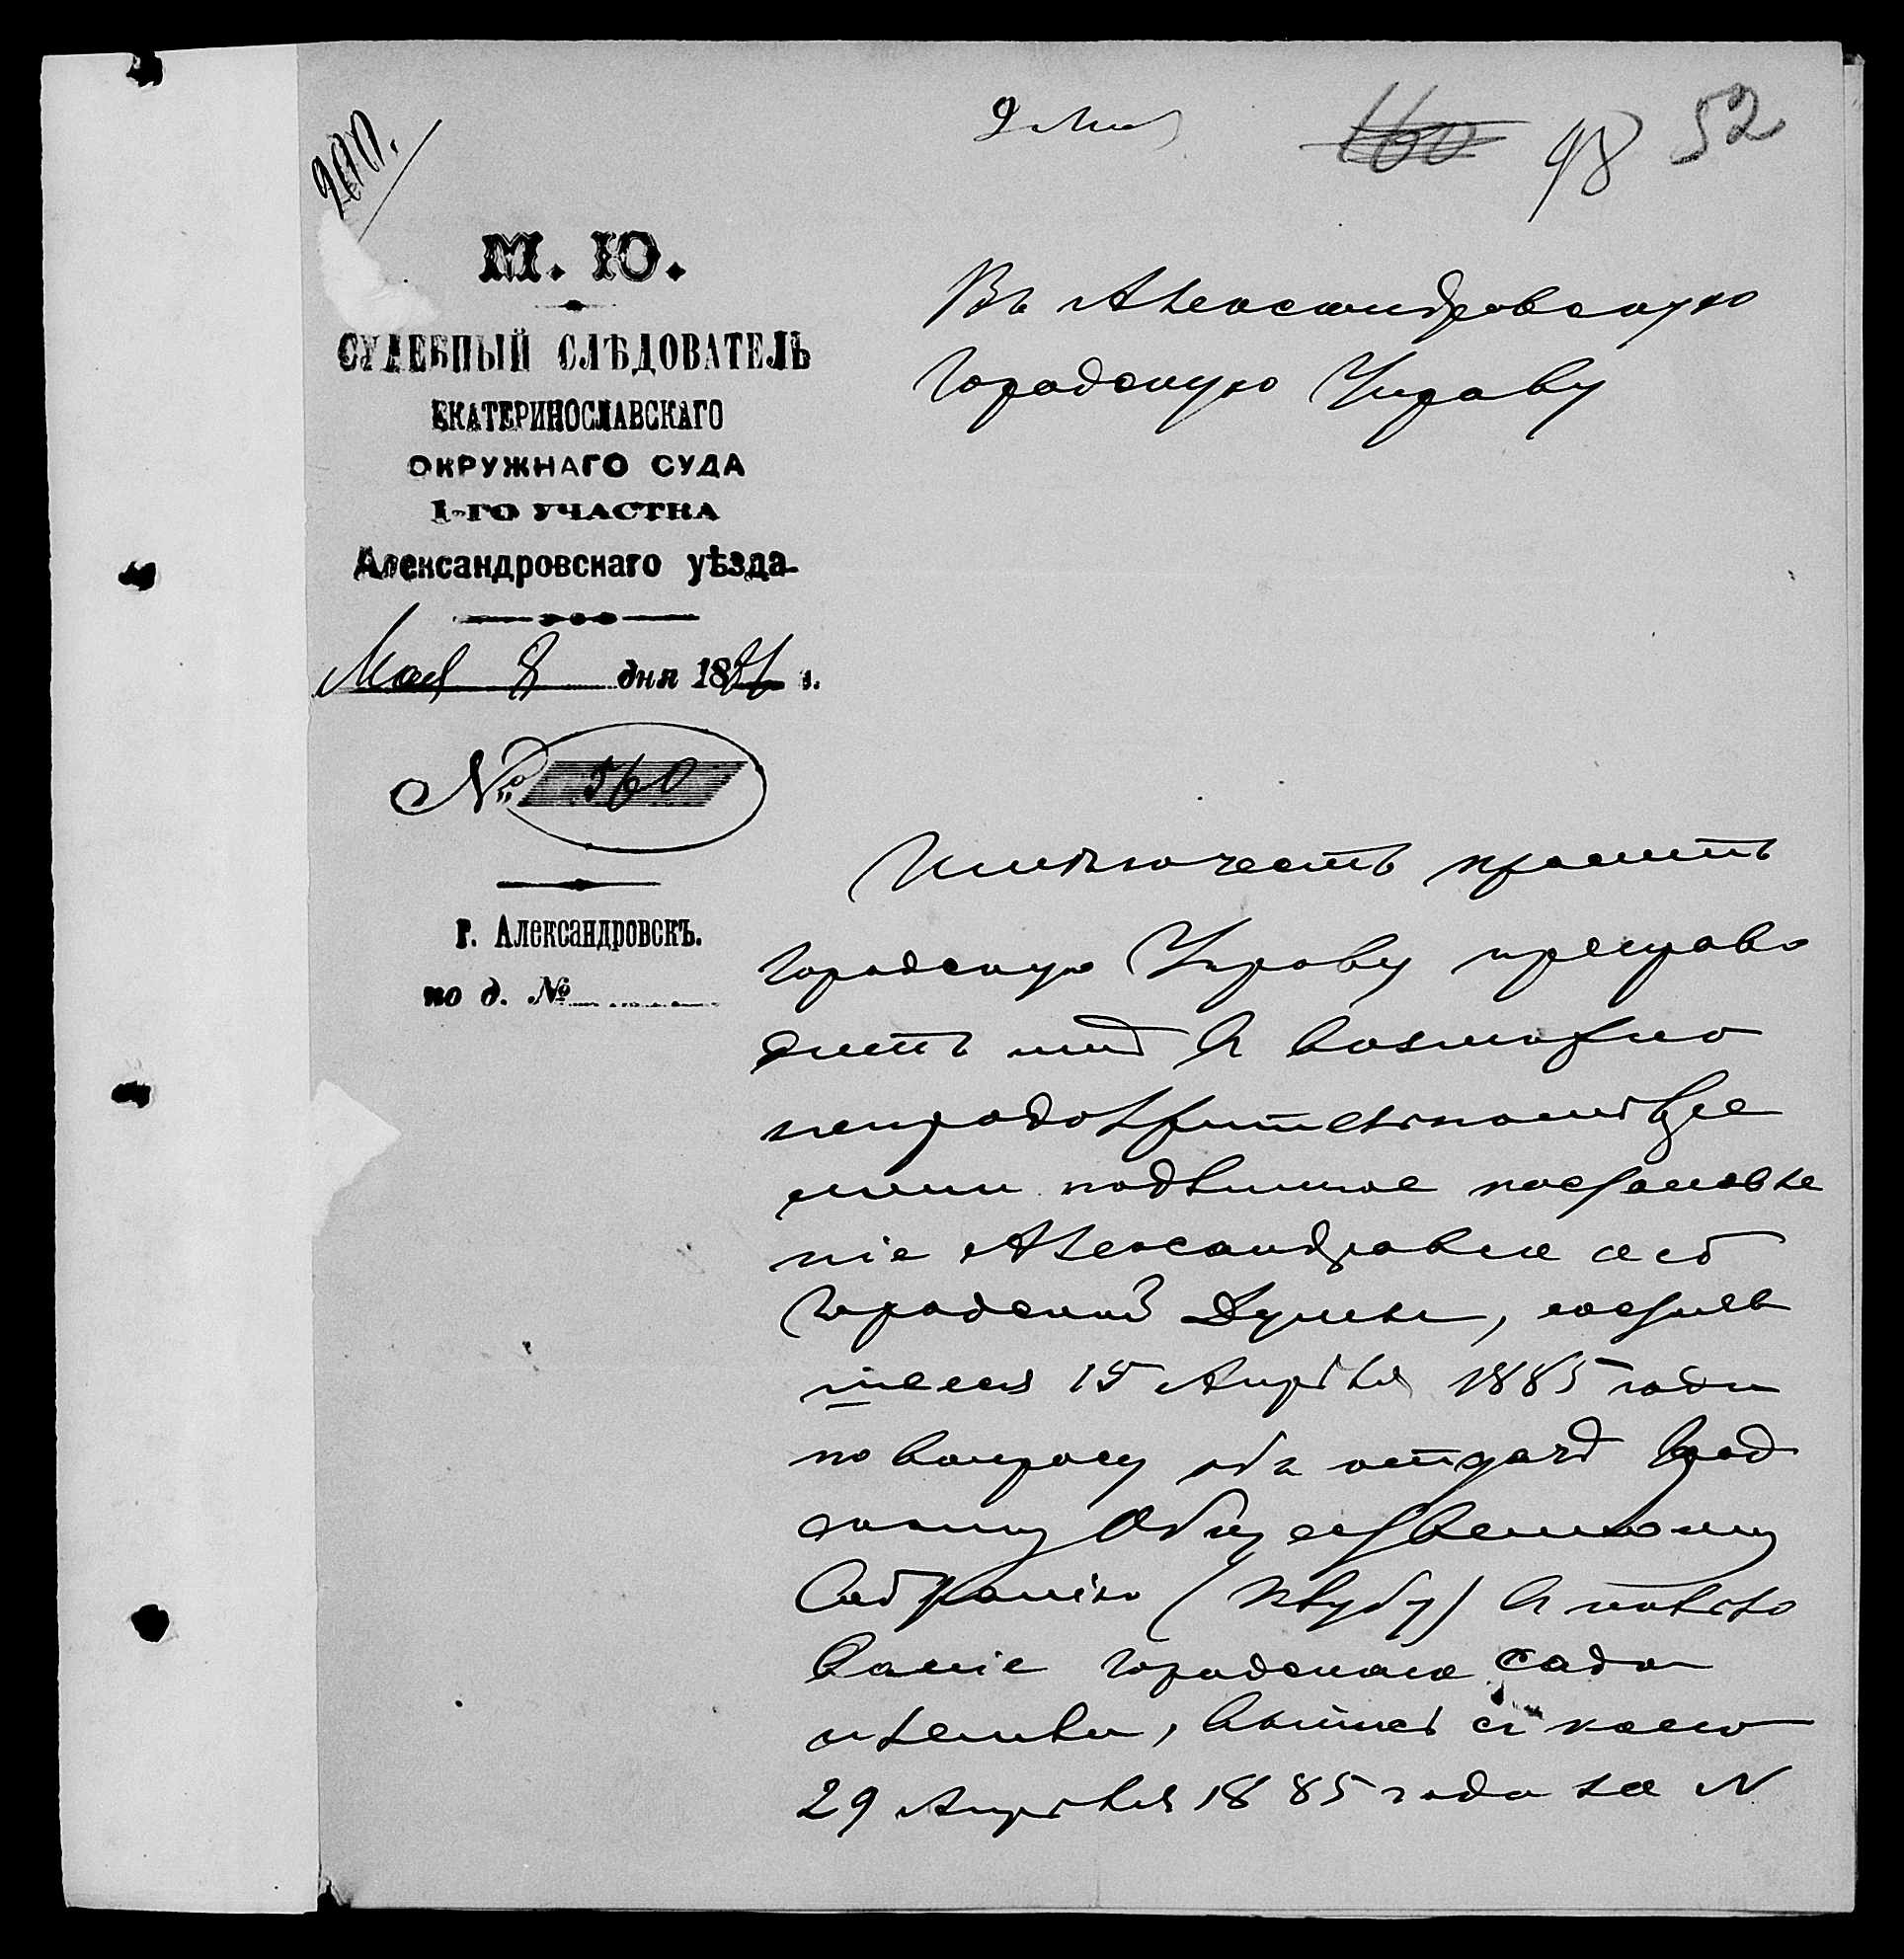 9 Мая
160 98 52
200.
М. Ю.
СУДЕБНЫЙ СЛѢДОВАТЕЛЬ
ЕКАТЕРИНОСЛАВСКАГО
ОКРУЖНАГО СУДА
1-ГО УЧАСТКА
Александровскаго уѣзда
Мая 8 дня 1891 г.
№ 560
г. Александровскъ.
по д. №
Въ Александровскую
Городскую Управу
Имѣю честь просить
Городскую Управу препрово
дить мнѣ въ возможно
непродолжительномъ вре
мени подлинное постановле
ніе Александровской
Городской Думы, состояв
шееся 15 Апрѣля 1885 года
по вопросу объ отдачѣ Город
скому Общественному
Собранію (Клубу) въ пользо
ваніе городскаго сада
и земли, выпись съ коего
29 Апрѣля 1885 года за N